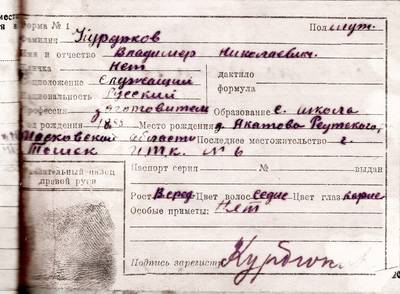 Форма № 1 Пол муж.
Фамилия Курдяков
Имя и отчество Владимир Николаевич.
Кличка Нет дактило
положение Служащий формула
циональность Русский
Профессия заготовитель Образование с. школа
рождения Место рождения д. Акатово Реутского,
Московской области Последнее местожительство г.
Томск ИТК. № 6
зательный палец Паспорт серия № выдан
правой руки
Рост В. сред. Цвет волос Седые Цвет глаз Карие
Особые приметы: Нет
Подпись регистрир.